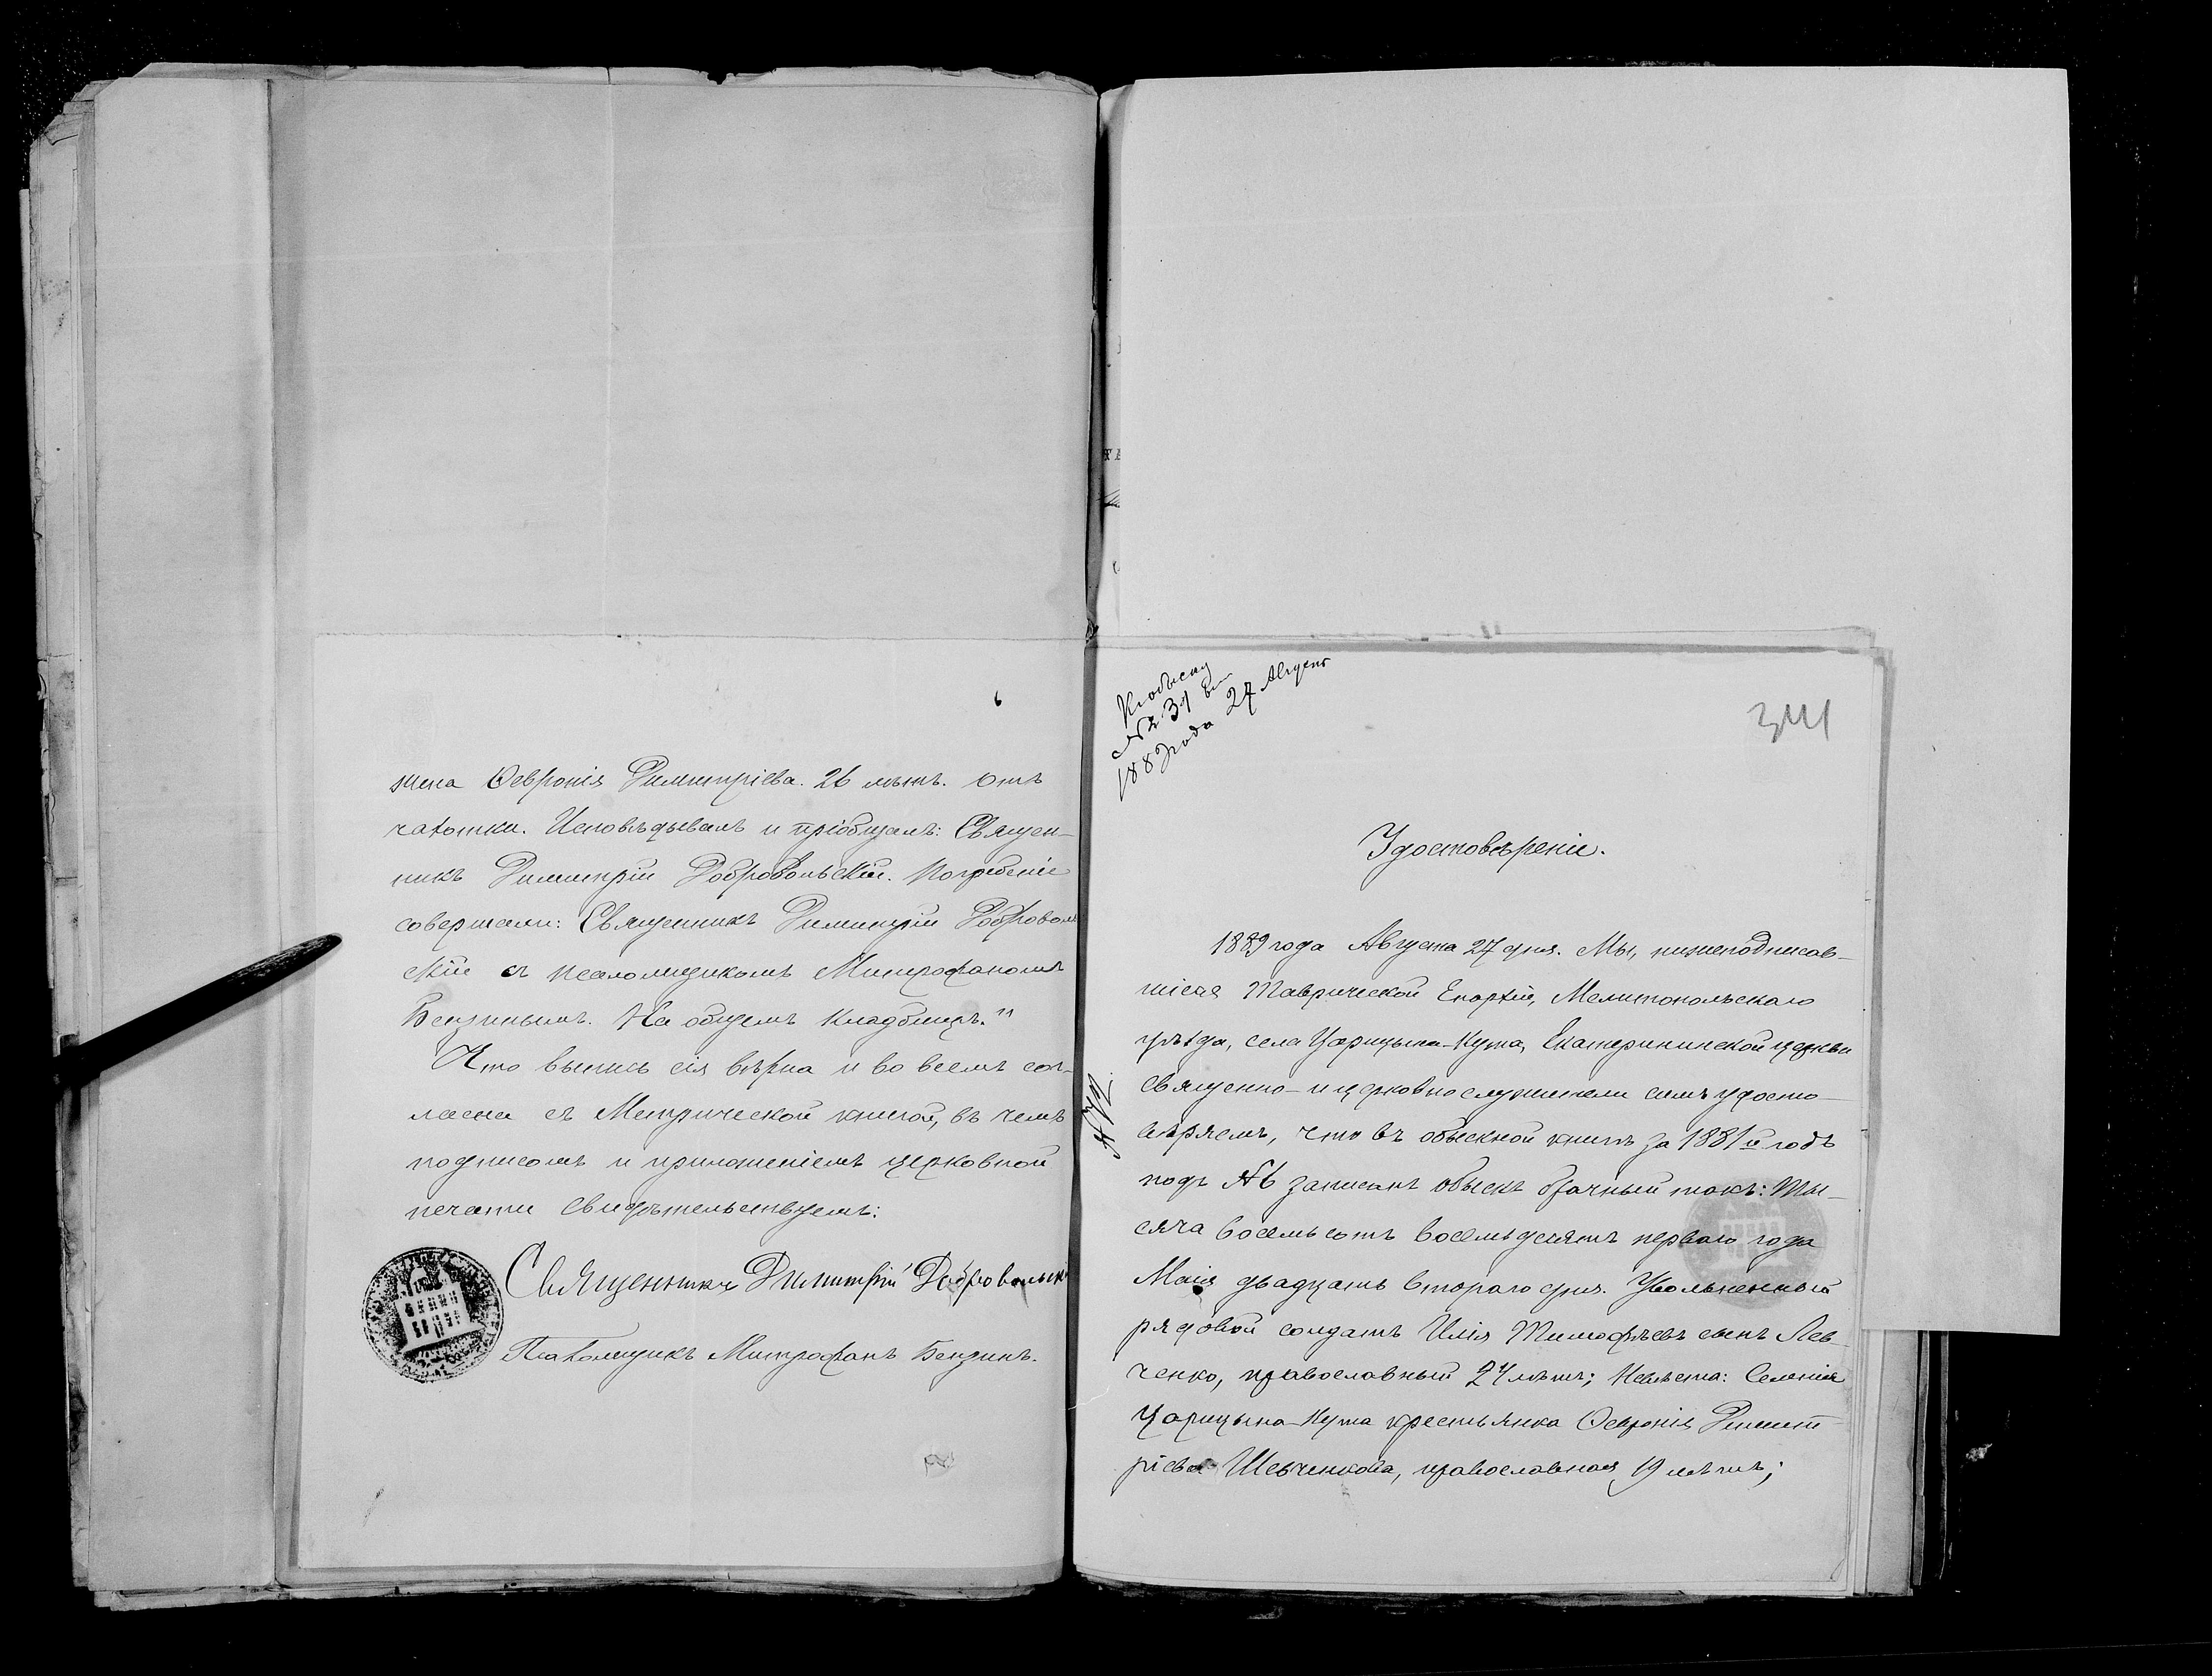 жена Ѳевронія Димитріева. 26 лѣтъ. Отъ
чахотки. Исповѣдывалъ и пріобщалъ: Священ-
никъ Димитрій Добровольскій. Погребеніе
совершали: Священникъ Димитрій Доброволь
скій съ псаломщикомъ Митрофаномъ
Бензинымъ. На общемъ кладбищѣ."
Что выпись сія вѣрна и во всемъ сог-
ласна съ Метрической книгой, въ чемъ
подписомъ и приложеніемъ церковной
печати свидѣтельствуемъ:
Священникъ Димитрій Добровольск
Псаломщикъ Митрофанъ Бензинъ.
Къ обыску
№ 31
1889 года 27 Август
341
Удостовѣреніе.
1889 года Августа 27 дня. Мы, нижеподписав-
шіеся Таврической Епархіи, Мелитопольскаго
уѣзда, села Царицына-Кута, Екатерининской церкви
священно- и церковнослужители симъ удосто-
вѣряемъ, что въ обыскной книгѣ за 1881й годъ
подъ № 6 записанъ обыскъ брачный такъ: Ты-
сяча восемьсотъ восемьдесятъ перваго года
Маія двадцать втораго дня. Уволенный
рядовой солдатъ Илія Тимофѣевъ сынъ Лев-
ченко, православный 24 лѣтъ; Невѣста: Селенія
Царицына-Кута крестьянка Ѳевронія Димит-
ріева Шевченкова, православная 19 лѣтъ;